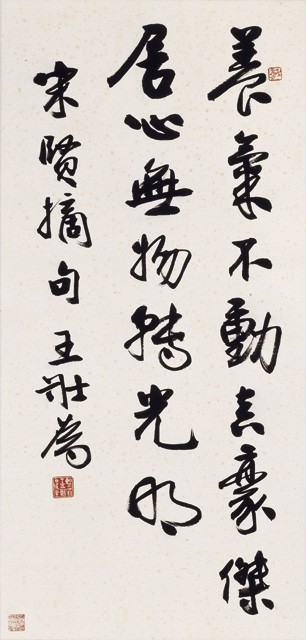 養氣不動真豪傑
居心無物轉光明
宋賢摘句王壯為